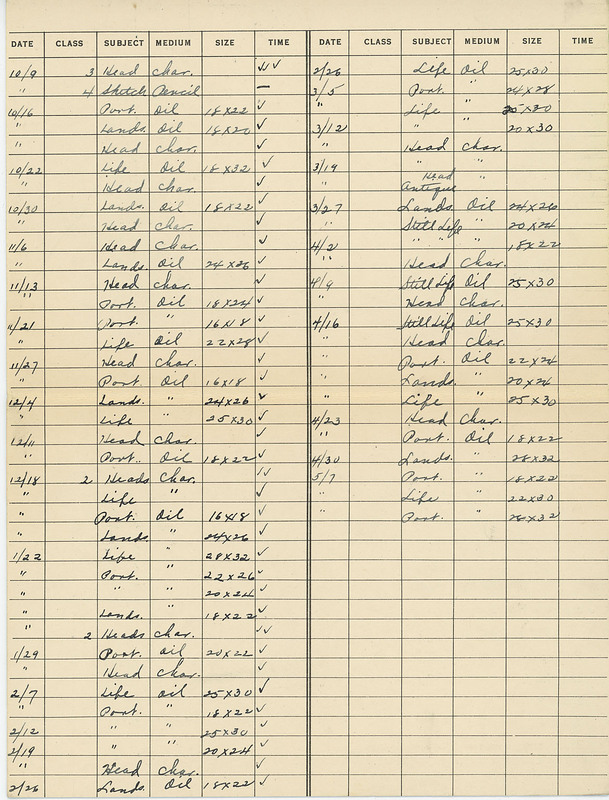 DATE CLASS SUBJECT MEDIUM SIZE TIME
10/9 3 Head Char. √√ √
" 4 Sketch Pencil —
10/16 Port. Oil 18x22 √
" Lands. Oil 18x20 √
" Head Char. √
10/22 Life Oil 18x32 √
" Head Char. √
10/30 Lands. Oil 18x22 √
" Head Char. √
11/6 Head Char. √
" Lands. Oil 24x26 √
11/13 Head Char. √
" Port. Oil 18x24 √
11/21 Port. " 16x18 √
" Life Oil 22x28 √
11/27 Head Char. √
" Port. Oil 16x18 √
12/4 Lands. " 24x26 √
" Life " 25x30 √
12/11 Head Char. √
" Port. Oil 18x22 √
12/18 2 Heads Char. √√
" Life " √
" Port. Oil 16x18 √
" Lands. " 24x26 √
1/22 Life " 28x32 √
" Port. " 22x26 √
" " " 20x24 √
" Lands. " 18x22 √
" 2 Heads Char. √√
1/29 Port. Oil 20x22 √
" Head Char. √
2/7 Life Oil 25x30 √
" Port. " 18x22 √
2/12 " " 25x30 √
2/19 " " 20x24 √
" Head Char. √
2/26 Lands. Oil 18x22 √
DATE CLASS SUBJECT MEDIUM SIZE TIME
2/26 Life Oil 25x30
3/5 Port. " 24x28
" Life " 25x30
3/12 " " 20x30
" Head Char.
3/19 " "
" Head "
Antique
3/27 Lands. Oil 24x26
" Still Life " 20x24
4/2 " " " 18x22
" Head Char.
4/9 Still Life Oil 25x30
" Head Char.
4/16 Still Life Oil 25x30
" Head Char.
" Port. Oil 22x24
" Lands. " 20x24
" Life " 25x30
4/23 Head Char.
" Port. Oil 18x22
4/30 Lands. " 28x32
5/7 Port. " 18x22
" Life " 22x30
" Port. " 28x32